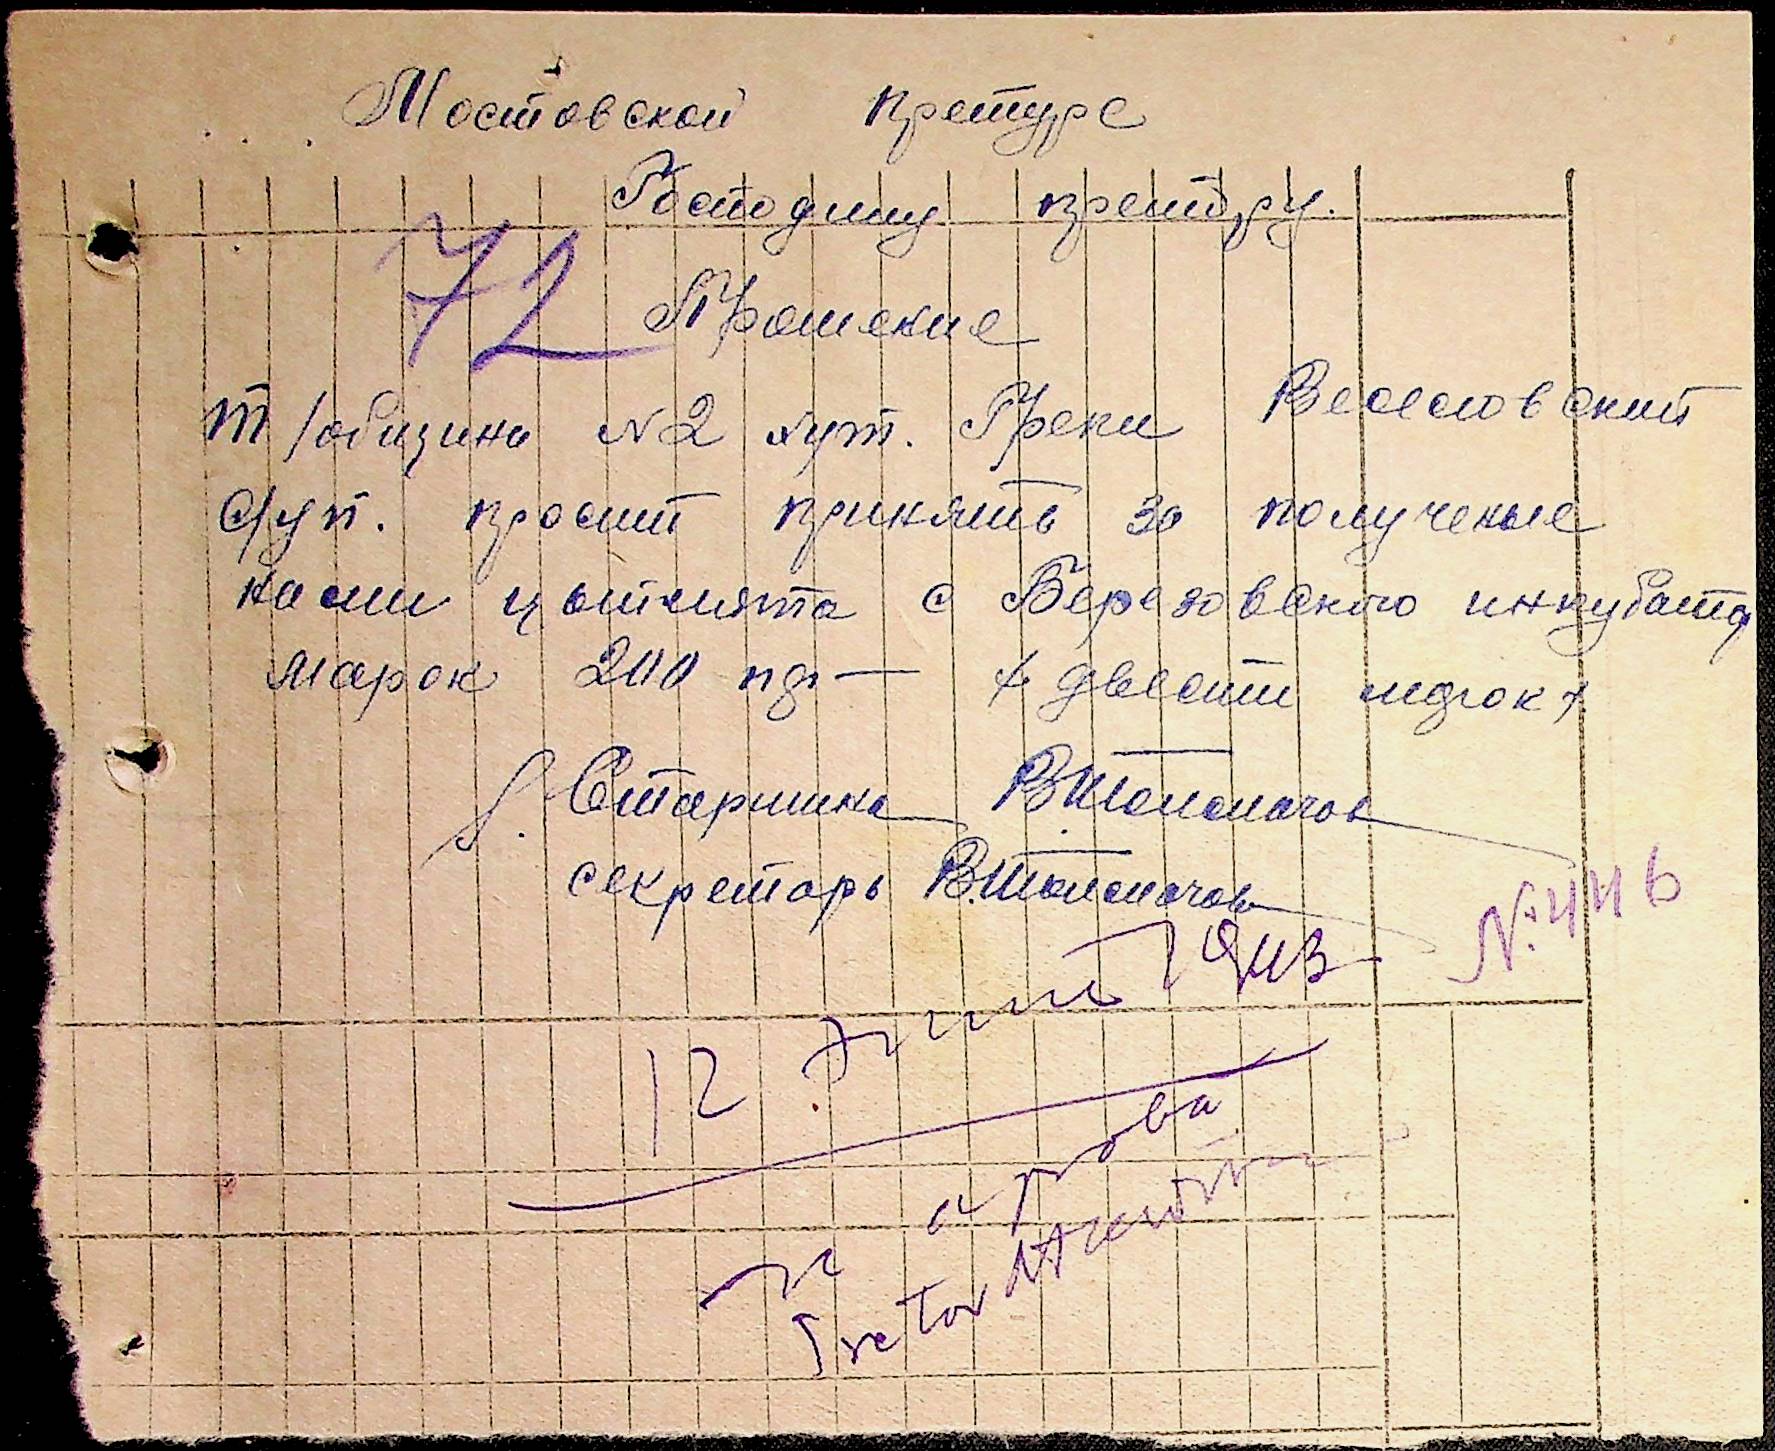 Мостовской претуре
Господину претору.
72
Прошение
т/общино №2 хут. Греки Веселовский
с/уп. просит принять за полученые
нами цытлята с Березовского инкубатор
марок 200 -
х двести марок х
Старшина В.Толмачов
секретарь В.Толмачов
№ 446
12 1943
Se aprobă
Pretor